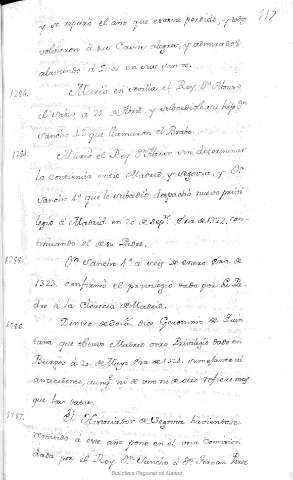 117
y se reparó el año que estava perdido, y
volvieron à sus Casas alegres, y admirados
alavando à Dios en sus Santos.
1284. Murió en Sevilla el Rey Dn. Alonso
el Savio à 21 de Abril, y subcediole su hijo Dn.
Sancho 4º que llamaron el Brabo.
1284. Murió el Rey Dn. Alonso sin determinar
la contienda entre Madrid, y Segovia, y Dn.
Sancho 4º que le subcedio despachó nuevo privi
legio à Madrid en 20 de Sepre. Era de 1322. con-
firmando el de su Padre.
1285. Dn. Sancho 4º à seis de enero Era de
1323. confirmó el privilegio dado por su Pa
dre à la Clerecia de Madrid.
1286. Dentro de Geronimo de Quin
tana que obtuvo Madrid otro Privilegio dado en
Burgos à 20 de Mayo Era de 1324. semejante al
antecedente, aunqe. ni de uno ni de otro refiere mas
que las datas.
1287. El Historiador de Segovia haciendose
remiendo à este año pone en él una Comision
dada por el Rey Dn. Sancho à Dn. Fernan Perez
Biblioteca Regional de Madrid